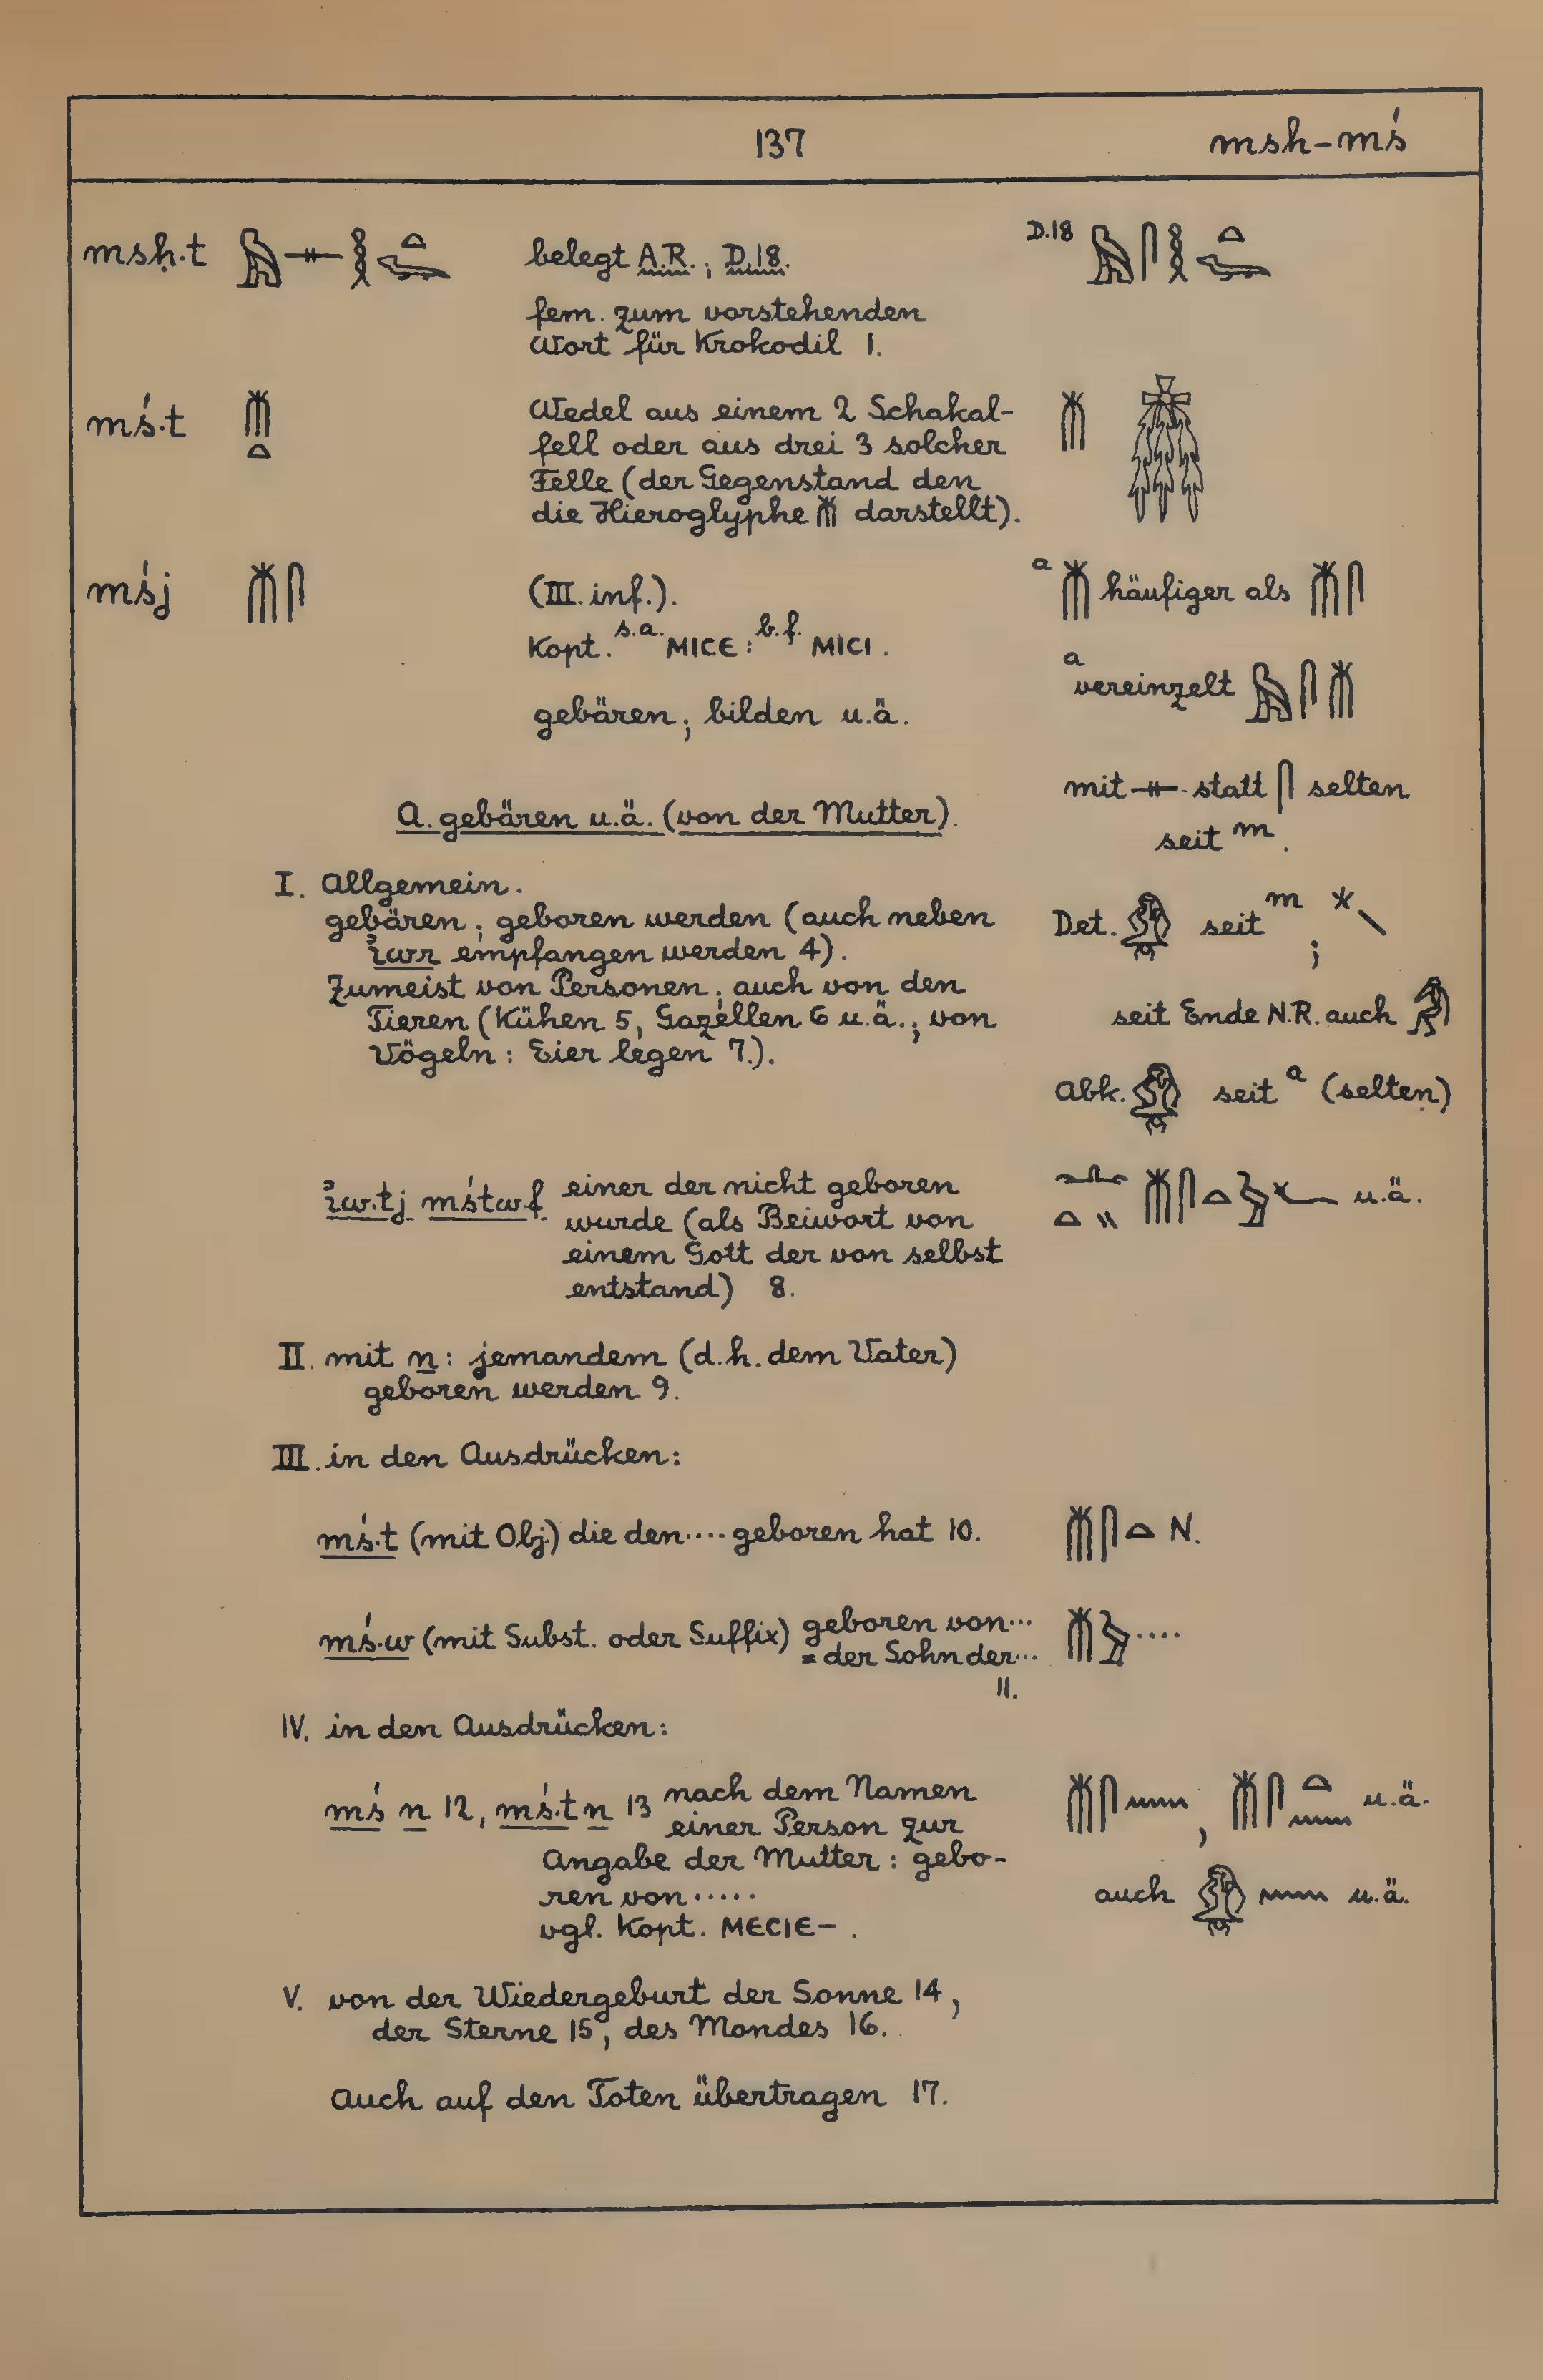 137 msh-mś
msḥ.t 𓅓𓊃𓎛𓏏𓆊 belegt A.R.; D.18. D.18 𓅓𓋴𓎛𓏏𓆊
fem. zum vorstehenden
Wort für Krokodil 1.
mś.t 𓄟𓏏 Wedel aus einem 2 Schakal- 𓄟
fell oder aus drei 3 solcher
Felle (der Gegenstand den
die Hieroglyphe 𓄟 darstellt).
mśj 𓄟𓋴 (III. inf.). a 𓄟 häufiger als 𓄟𓋴
Kopt. s.a. ⲘⲒⲤⲈ: b.f. ⲘⲒⲤⲒ.
a vereinzelt 𓅓𓋴𓄟
gebären; bilden u.ä.
mit 𓊃 statt 𓋴 selten
seit m.
A. gebären u.ä. (von der Mutter).
I. Allgemein.
gebären; geboren werden (auch neben
i҆wr empfangen werden 4).
Zumeist von Personen; auch von den
Tieren (Kühen 5, Gazellen 6 u.ä.; von
Vögeln: Eier legen 7.).
Det. 𓁒 seit m; * \
seit Ende N.R. auch
Abk. 𓁒 seit a (selten)
i҆w.tj mśtw.f einer der nicht geboren 𓂜𓏏𓏭 𓄟𓋴𓏏𓅱𓆑 u.ä.
wurde (als Beiwort von
einem Gott der von selbst
entstand) 8.
II. mit n: jemandem (d.h. dem Vater)
geboren werden 9.
III. in den Ausdrücken:
mś.t (mit Obj.) die den.... geboren hat 10. 𓄟𓋴𓏏 N.
mś.w (mit Subst. oder Suffix) geboren von... 𓄟𓅱....
= der Sohn der...
11.
IV. in den Ausdrücken:
mś n 12, mś.t n 13 nach dem Namen 𓄟𓋴𓈖, 𓄟𓋴𓏏𓈖 u.ä.
einer Person zur
Angabe der Mutter: gebo-
ren von..... auch 𓁒𓈖 u.ä.
vgl. Kopt. ⲘⲈⲤⲒⲈ-.
V. von der Wiedergeburt der Sonne 14,
der Sterne 15, des Mondes 16.
Auch auf den Toten übertragen 17.